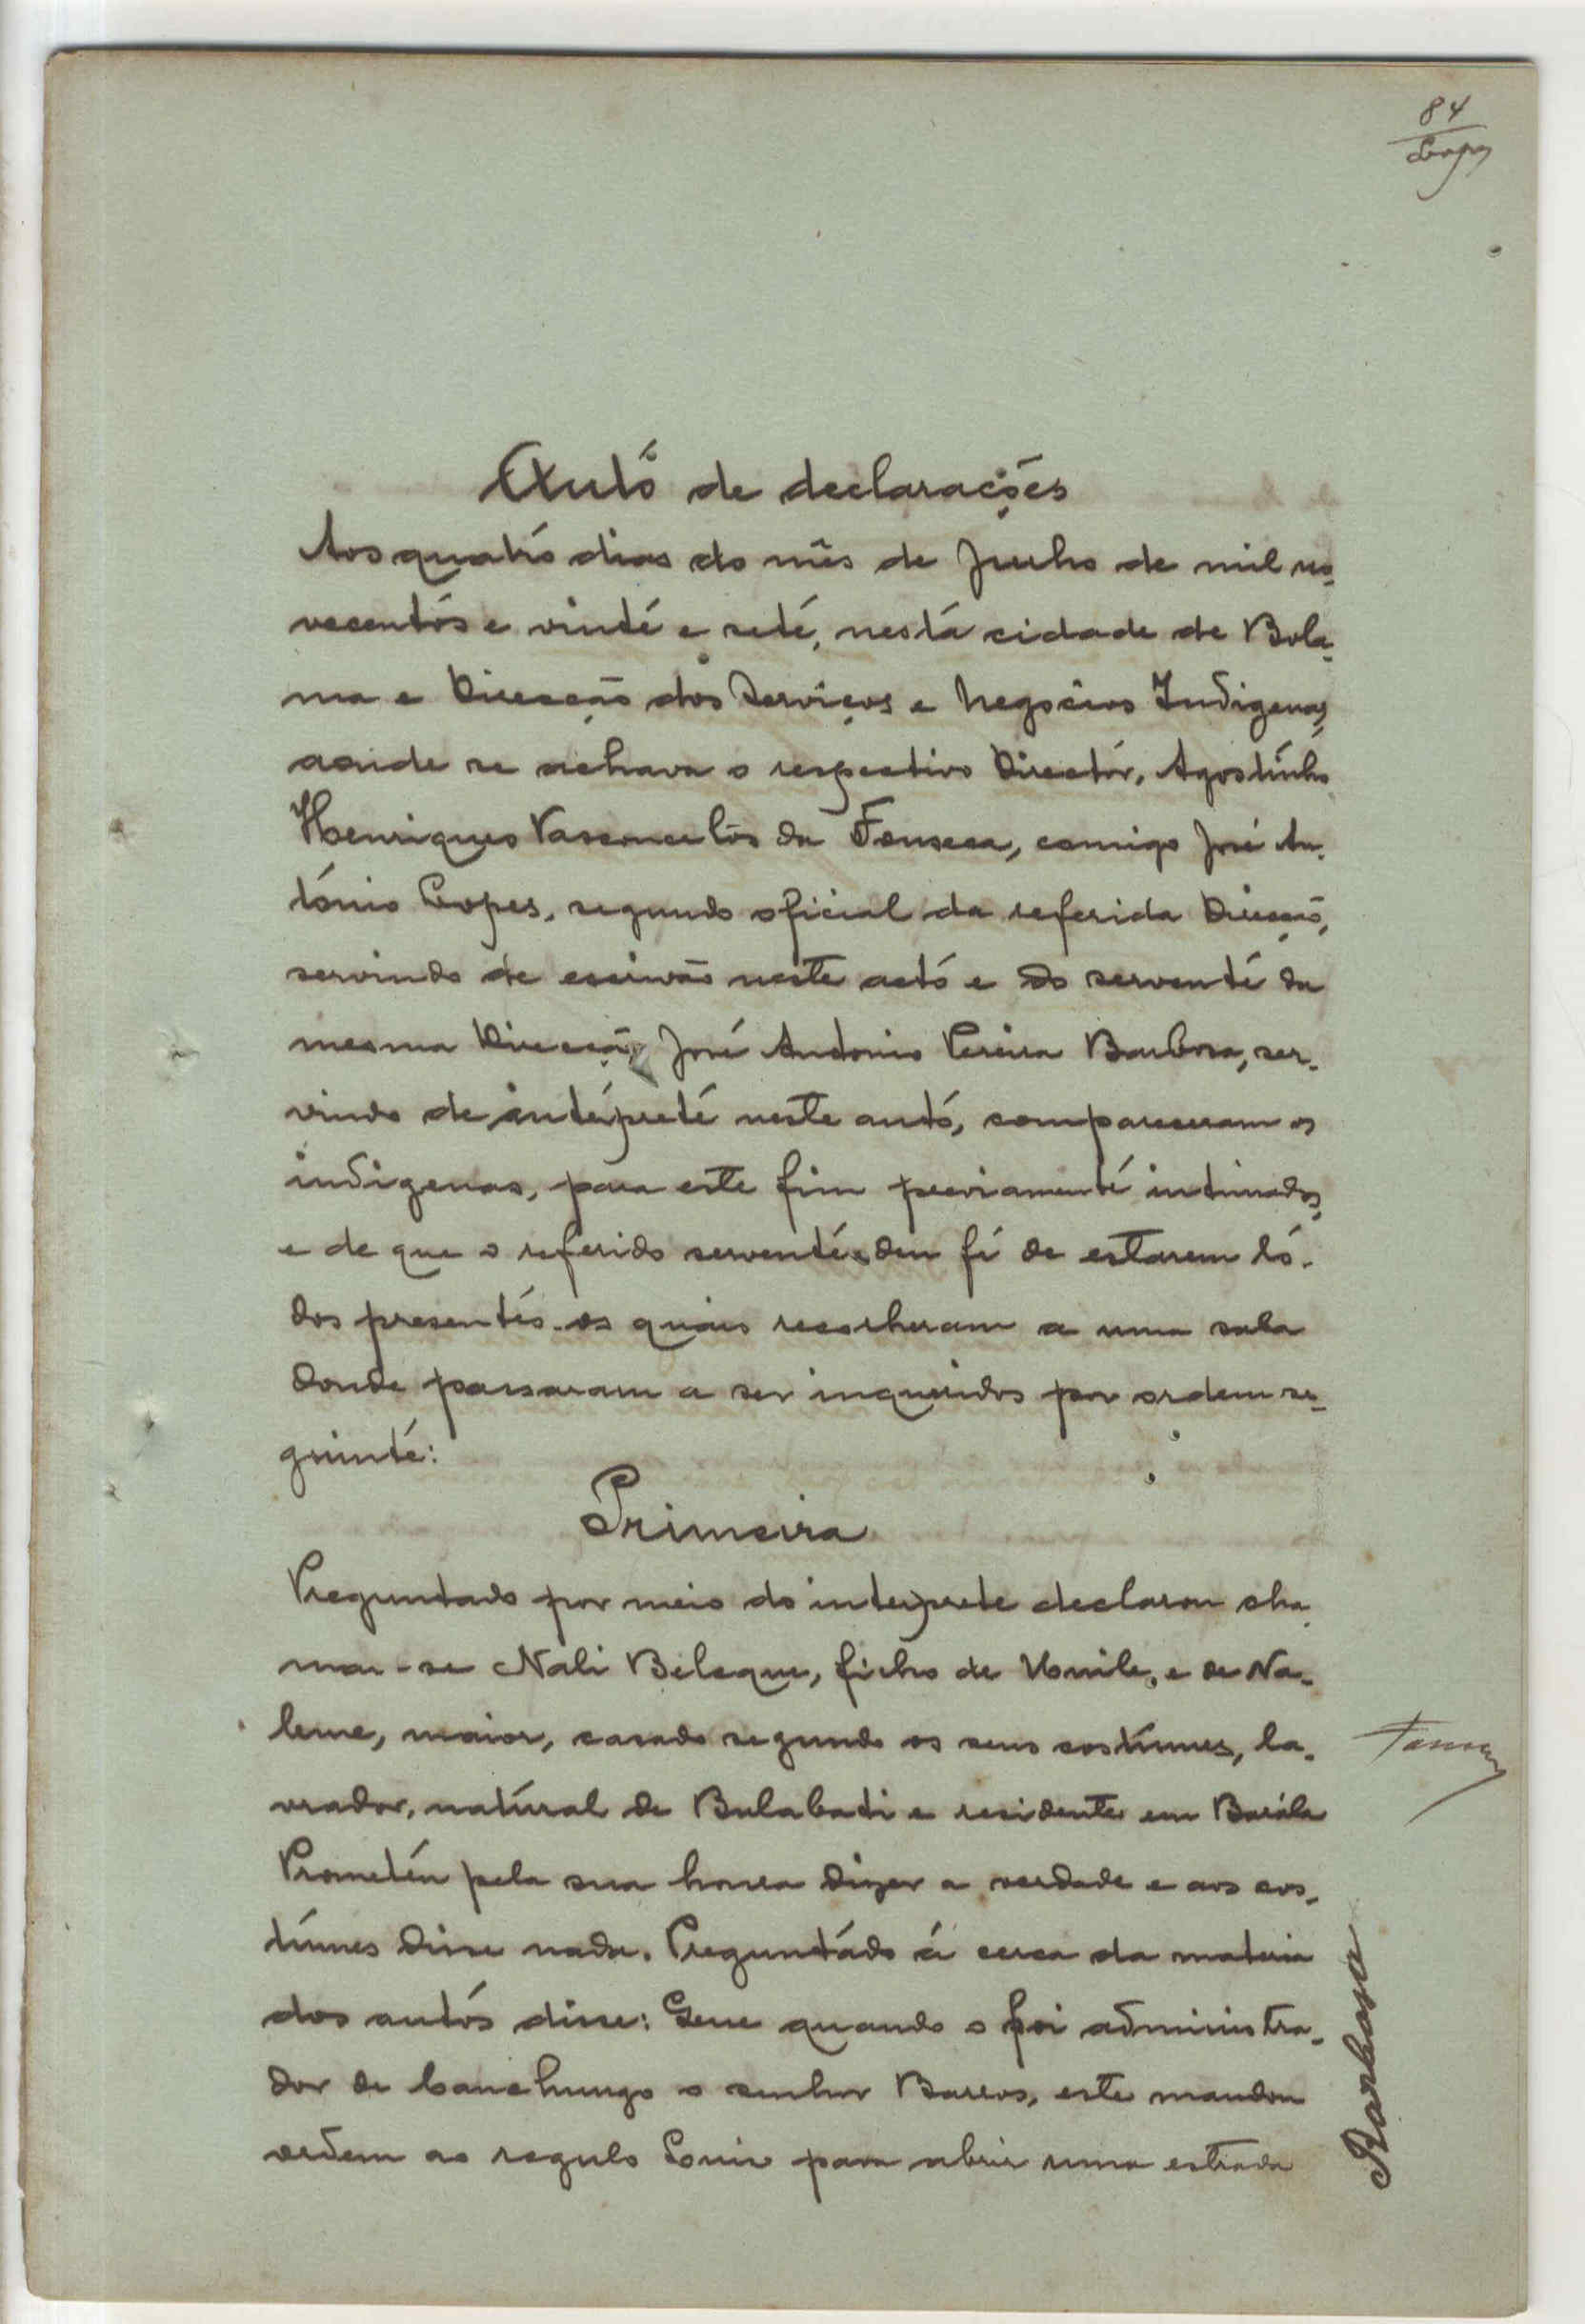 84
Lopes
Auto de declarações
Aos quatro dias do mês de Junho de mil no-
vecentos e vinte e sete, nesta cidade de Bola-
ma e Direcção dos Serviços e Negócios Indigenas,
aonde se achava o respectivo Director, Agostinho
Henriques Vasconcelos da Fonseca, comigo José An-
tónio Lopes, segundo oficial da referida Direcção,
servindo de escrivão neste acto e do servente da
mesma Direcção, José Antonio Pereira Barbosa, ser-
vindo de intérprete neste auto, compareceram os
indigenas, para este fim previamente intimados,
e de que o referido servente deu fé de estarem to-
dos presentes os quais recolheram a uma sala
donde passaram a ser inqueridos por ordem se-
guinte:
Primeira
Preguntado por meio do interprete declarou cha-
mar-se Nali Belaque, filho de e de Na-
leme, maior, casado segundo os seus costumes, la-
vrador, natural de Bulabati e residente em
Prometeu pela sua honra dizer a verdade e aos cos-
tumes disse nada. Preguntado á cerca da materia
dos autos disse: Que quando o foi administra-
dor de Canchungo o senhor Barros, este mandou
ordem ao regulo para abrir uma estrada
Barbosa